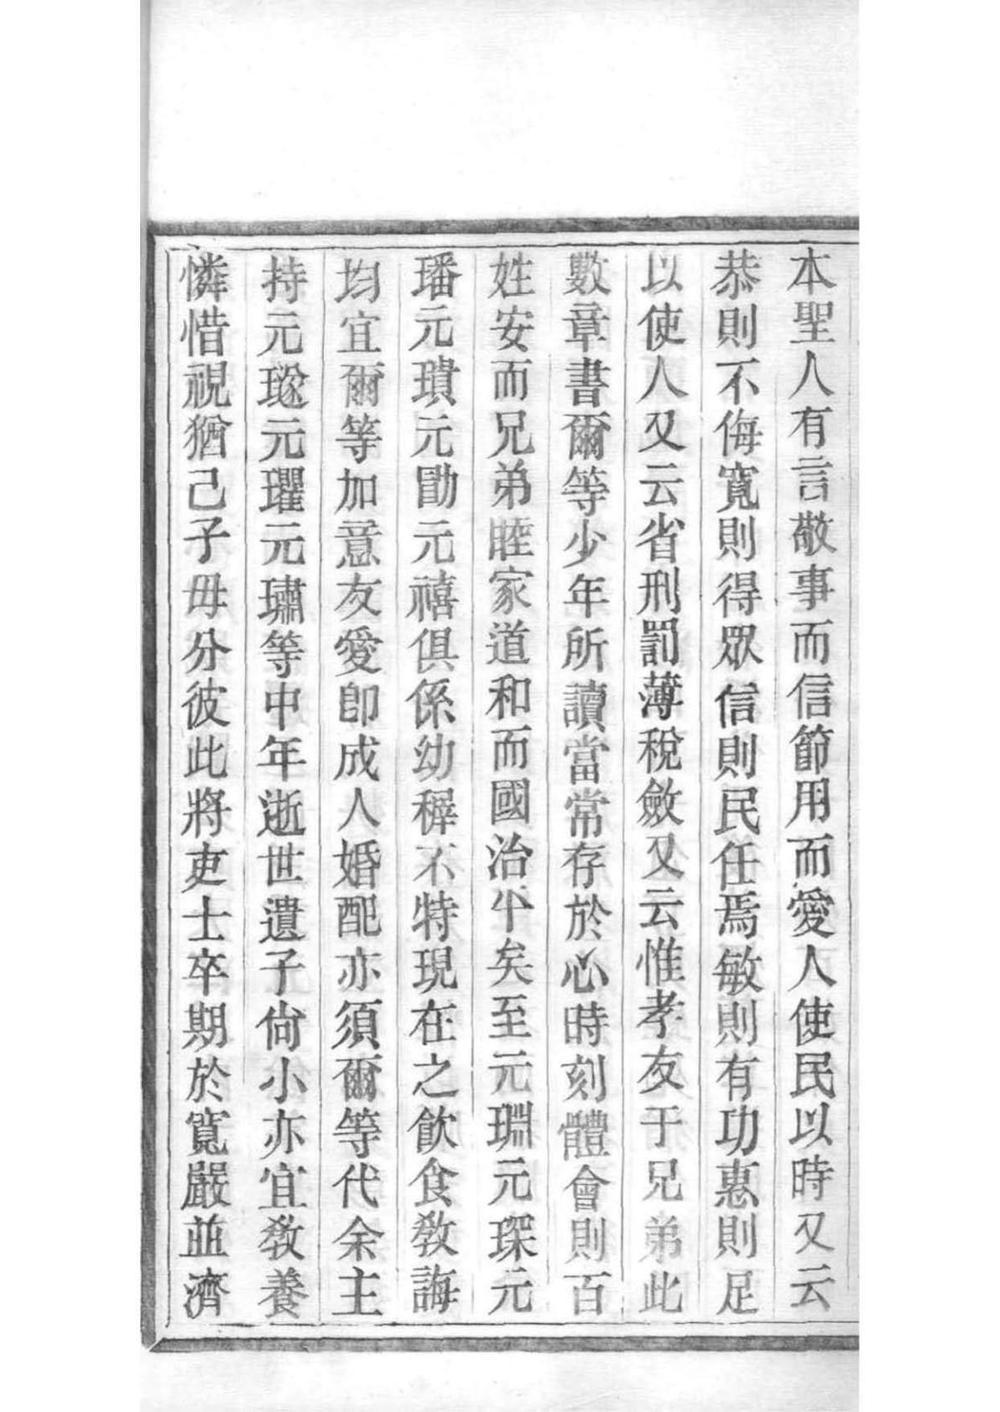 本聖人有言敬事而信節用而愛人使民以時又云
恭則不侮寬則得眾信則民任焉敏則有功惠則足
以使人又云省刑罰薄稅斂又云惟孝友于兄弟此
數章書爾等少年所讀當常存於心時刻體會則百
姓安而兄弟睦家道和而國治平矣至元淵元琛元
璠元璝元勖元禧俱係幼穉不特現在之飲食敎誨
均宜爾等加意友愛卽成人婚配亦須爾等代余主
持元璁元瓘元璛等中年逝世遺子尙小亦宜敎養
憐惜視猶己子毋分彼此將吏士卒期於寬嚴並濟